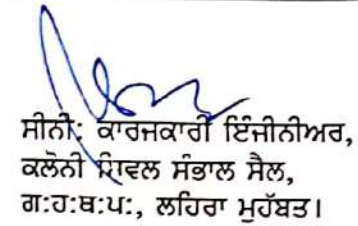 ਸੀਨੀ: ਕਾਰਜਕਾਰੀ ਇੰਜੀਨੀਅਰ,
ਕਲੋਨੀ ਸਿਵਲ ਸੰਭਾਲ ਸੈਲ,
ਗ:ਹ:ਥ:ਪ:, ਲਹਿਰਾ ਮੁਹੱਬਤ।